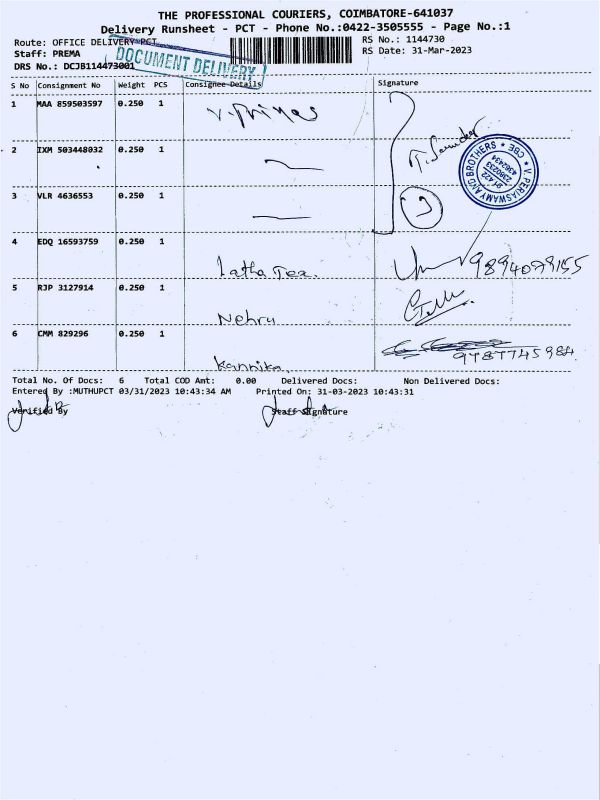 THE PROFESSIONAL COURIERS, COIMBATORE-641037
Delivery Runsheet - PCT - Phone No.:0422-3505555 - Page No.:1
Route: OFFICE DELIVERY-PCT RS No.: 1144730
Staff: PREMA RS Date: 31-Mar-2023
DRS No.: DCJB114473001
DOCUMENT DELIVERY
S No Consignment No Weight PCS Consignee Details Signature
1 MAA 859503597 0.250 1
2 IXM 503448032 0.250 1
V. PERIASWAMY AND BROTHERS * CBE *
3 VLR 4636553 0.250 1
3
4 EDQ 16593759 0.250 1
Latha Tex. 9894079155
5 RJP 3127914 0.250 1
Nehru
6 CMM 829296 0.250 1
Kannika 9787745984
Total No. Of Docs: 6 Total COD Amt: 0.00 Delivered Docs: Non Delivered Docs:
Entered By :MUTHUPCT 03/31/2023 10:43:34 AM Printed On: 31-03-2023 10:43:31
Verified By Staff Signature